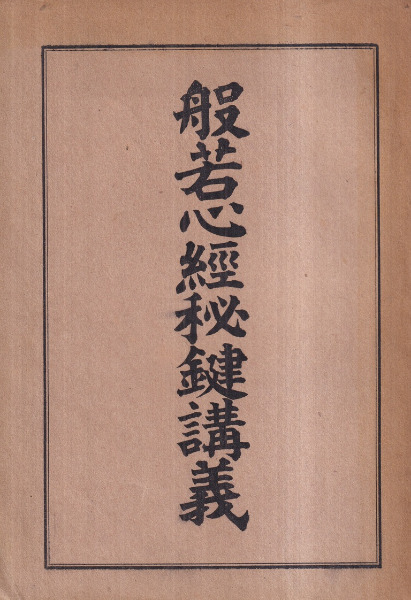 般若心經秘鍵講義